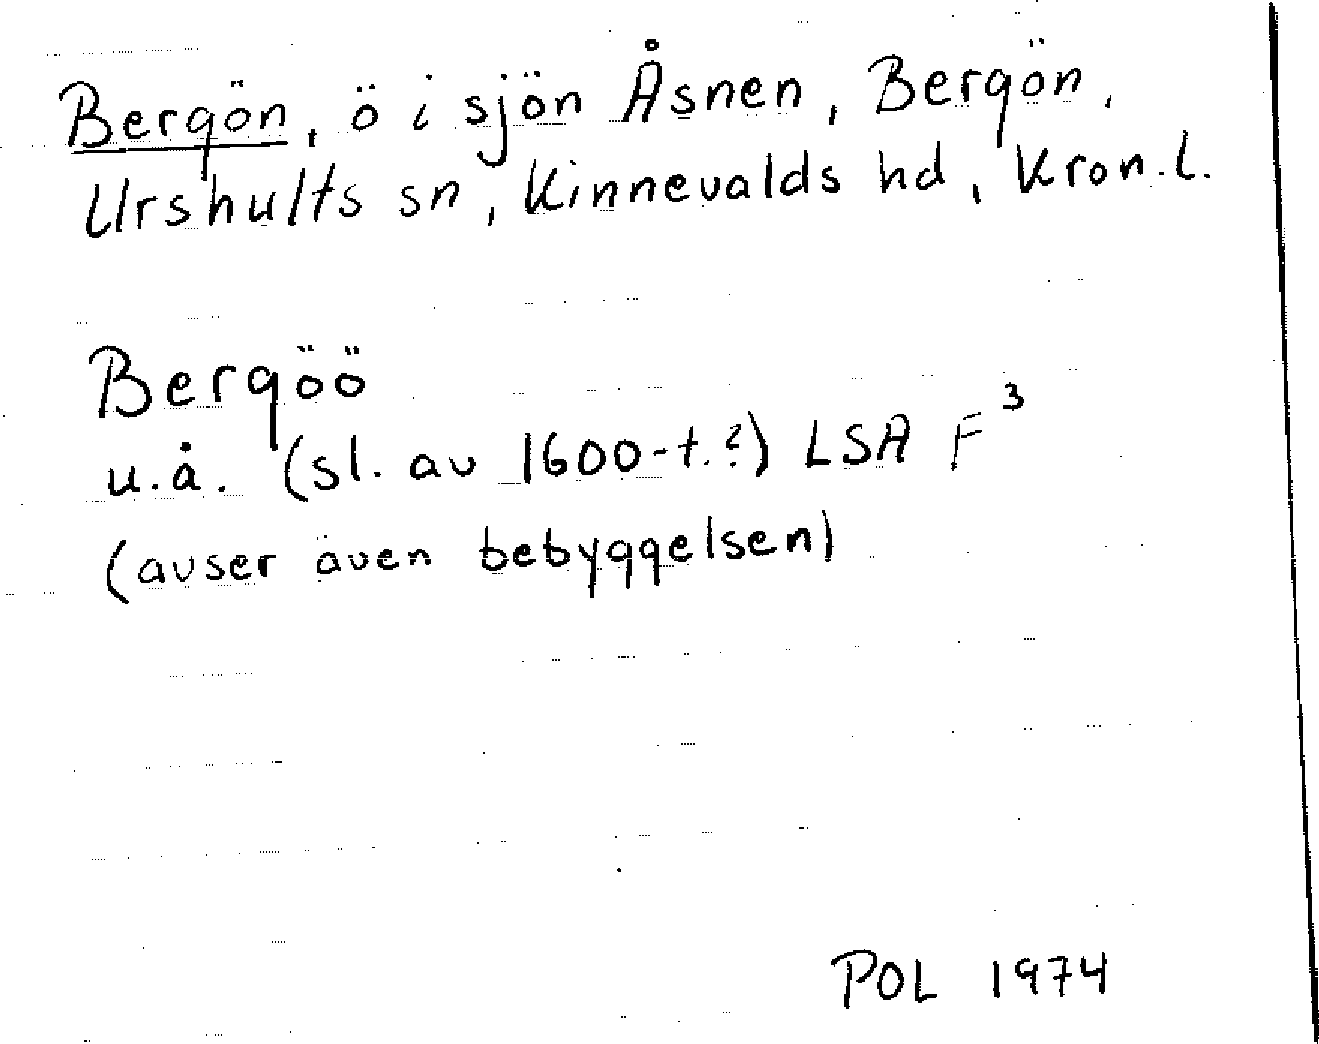 Bergön, ö i sjön Åsnen, Bergön,
Urshults sn, Kinnevalds hd, Kron. l.
Bergöö
u.å. (sl. av 1600-t.?) LSA F³
(avser även bebyggelsen)
POL 1974